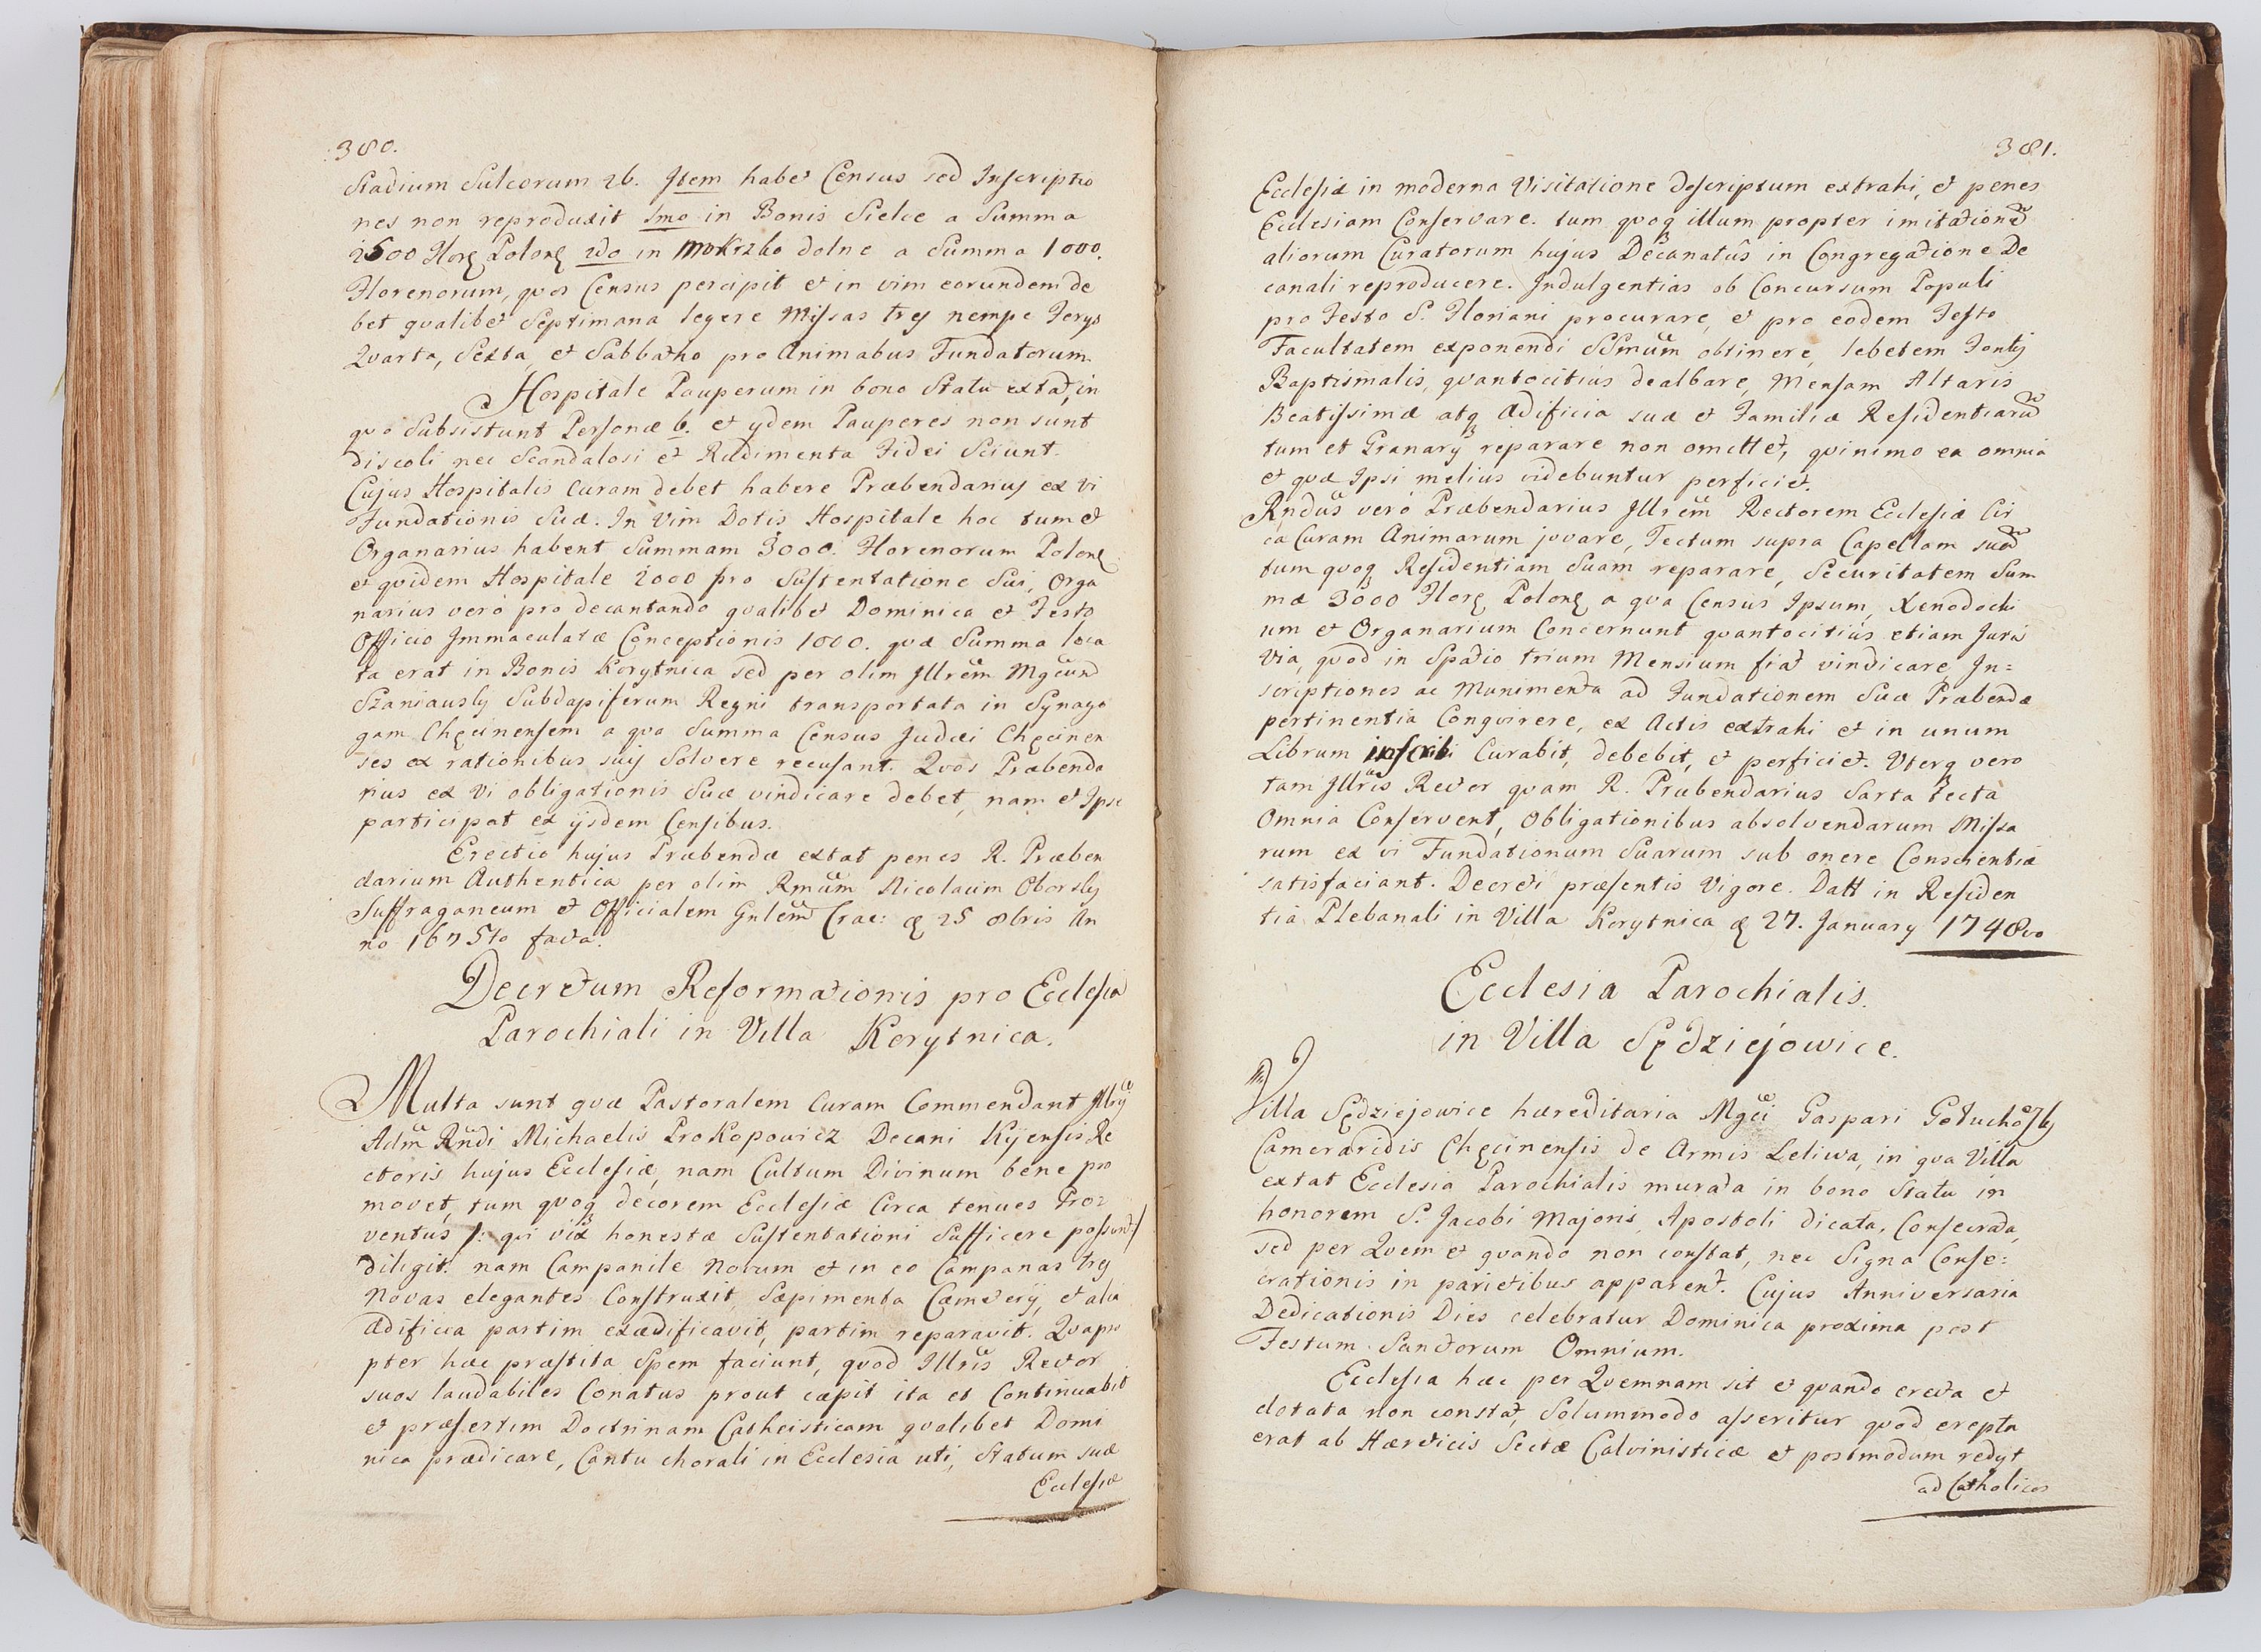 380.
Stadium Sulcorum 26. Item habet Census sed Inscriptio
nes non reproduxit 1mo in Bonis Sielce a Summa
2500 Flor Polon 2do in Mokrzko dolne a Summa 1000.
Florenorum, quos Census percipit et in vim eorundem de
bet qvalibet Septimana legere Missas tres nempe Ferys
Qvarta, Sexta, et Sabbatho pro Animabus Fundatorum.
Hospitale Pauperum in bono Statu extat, in
qvo Subsistunt Personæ 6. et ydem Pauperes non sunt
discoli nec Scandalosi et Rudimenta Fidei Sciunt.
Cujus Hospitalis Curam debet habere Præbendarius ex vi
Fundationis Suæ. In Vim Dotis Hospitale hoc tum et
Organarius habent Summam 3000. Florenorum Polon
et qvidem Hospitale 2000 pro Sustentatione Sui, Orga
narius verò pro decantando qvalibet Dominica et Festo
Officio Immaculatæ Conceptionis 1000. qvæ Summa loca
ta erat in Bonis Korytnica sed per olim Illrem Mgcum
Szaniausky Subdapiferum Regni transportata in Synago
gam Chęcinensem a qva Summa Census Judæi Chęcinen
ses ex rationibus suis Solvere recusant. Qvos Præbenda
rius ex Vi obligationis Suæ vindicare debet, nam et Ipse
participat ex ijsdem Censibus.
Erectio hujus Præbendæ extat penes R. Præben
darium Authentica per olim Rmum Nicolaum Oborsky
Suffraganeum et Officialem Gnlem Crac: 25 8bris An
no 1675to facta.
Decretum Reformationis pro Ecclesia
Parochiali in Villa Korytnica.
Multa sunt qvæ Pastoralem Curam Commendant Illris
Adm Rndi Michaelis Prokopowicz Decani Kijensis Re
ctoris hujus Ecclesiæ, nam Cultum Divinum bene pro
movet, tum qvoq decorem Ecclesiæ Circa tenues Pro:
ventus /: qvi vix honestæ Sustentationi Sufficere possunt :/
diligit: nam Campanile Novum et in eo Campanas tres
Novas elegantes Construxit, Sæpimenta Cæmetery, et alia
ædificia partim exædificavit, partim reparavit. Qvapro
pter hæc præstita Spem faciunt, qvod Illris Rector
suos laudabiles Conatus prout cæpit ita et Continuabit
et præsertim Doctrinam Catheisticam qvalibet Domi
nica prædicare, Cantu chorali in Ecclesia uti, Statum suæ
Ecclesiæ
381.
Ecclesiæ in moderna Visitatione descriptum extrahi, et penes
Ecclesiam Conservare. tum qvoq illum propter imitationem
aliorum Curatorum hujus Decanatûs in Congregatione De
canali reproducere. Indulgentias ob Concursum Populi
pro Festo S. Floriani procurare, et pro eodem Festo
Facultatem exponendi SSmum obtinere, lebetem Fontis
Baptismalis, qvantocitius dealbare, Mensam Altaris
Beatissimæ atq ædificia suæ et Familiæ Residentiarum
tum et Granary reparare non omittet, qvinimo ea omnia
et qvæ Ipsi melius videbuntur perficiet.
Rndus verò Præbendarius Illrem Rectorem Ecclesiæ Cir
ca Curam Animarum juvare, Tectum supra Capellam suam
tum qvoq Residentiam Suam reparare, Securitatem Sum
mæ 3000 Flor Polon a qva Census Ipsum, Xenodochi
um et Organarium Concernunt qvantocitiùs etiam Juris
Via, qvod in Spatio trium Mensium fiat vindicare, In=
scriptiones ac Munimenta ad Fundationem Suæ Præbendæ
pertinentia Conqvirere, ex Actis extrahi et in unum
Librum inscribi Curabit, debebit, et perficiet. Uterq vero
tam Illris Rector qvam R. Præbendarius Sarta tecta
Omnia Conservent, Obligationibus absolvendarum Missa
rum ex vi Fundationum Suarum sub onere Conscientiæ
satisfaciant. Decreti præsentis Vigore. Datt in Residen
tia Plebanali in Villa Korytnica 27. January 1748vo
Ecclesia Parochialis.
in Villa Sędziejowice.
Villa Sędziejowice hæreditaria Mgci Gaspari Gołuchowsky
Cameraridis Chęcinensis de Armis Leliwa, in qva Villa
extat Ecclesia Parochialis murata in bono Statu in
honorem S. Jacobi Majoris Apostoli dicata, Consecrata,
sed per Qvem et qvando non constat, nec Signa Conse:
crationis in parietibus apparent. Cujus Anniversaria
Dedicationis Dies celebratur Dominica proxima post
Festum Sanctorum Omnium.
Ecclesia hæc per Qvemnam sit et qvando erecta et
dotata non constat, Solummodo asseritur qvod erepta
erat ab Hæreticis Sectæ Calvinisticæ et postmodum redyt
ad Catholicos